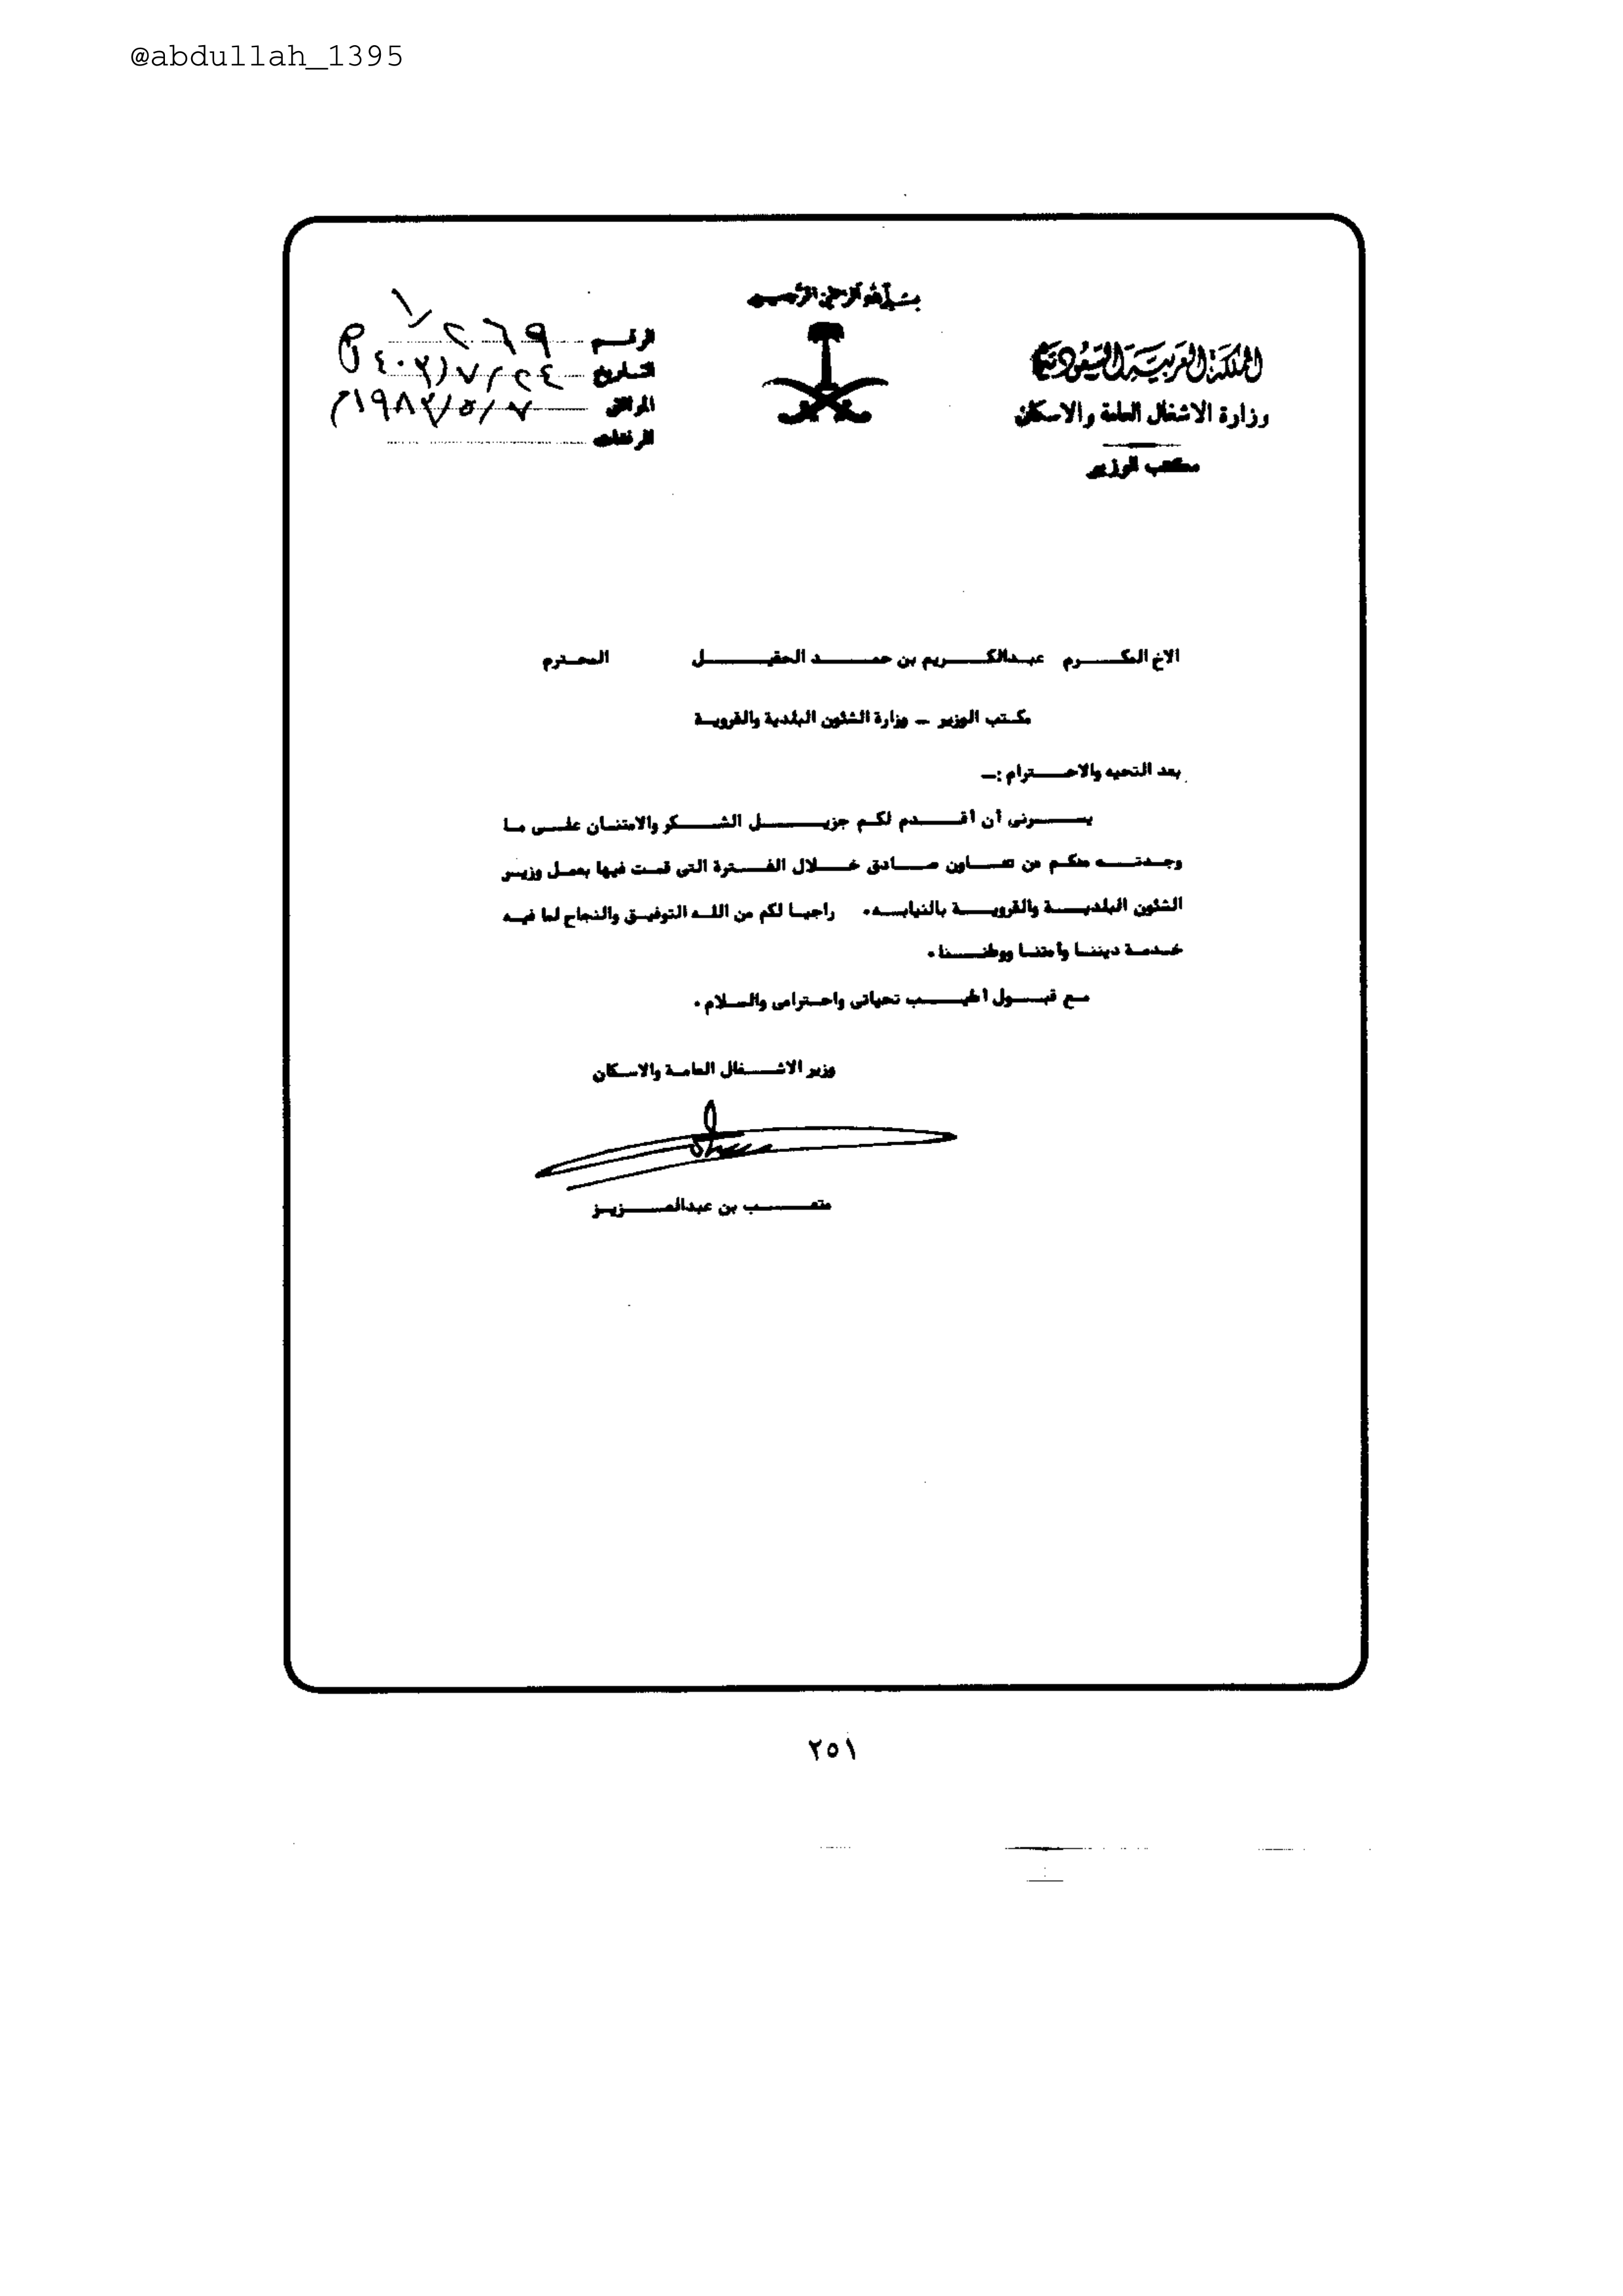 @abdullah_1395
بسم الله الرحمن الرحيم
المملكة العربية السعودية
وزارة الاشغال العامة والاسكان
مكتب الوزير
الرقم ٢٦٩
التاريخ ٢٤/٧/٤٠٣
الموافق ٧/٥/١٩٨٣م
المرفقات
الاخ المكرم عبدالكريم بن حمد الحقيل المحترم
مكتب الوزير – وزارة الشئون البلدية والقروية
بعد التحيه والاحترام :–
يسرنى أن أقدم لكم جزيل الشكر والامتنان على ما
وجدته منكم من تعاون صادق خلال الفترة التى قمت فيها بعمل وزير
الشئون البلدية والقروية بالنيابه . راجيا لكم من الله التوفيق والنجاح لما فيه
خدمة ديننا وأمتنا ووطننا .
مع قبول اطيب تحياتى واحترامى والسلام .
وزير الاشغال العامة والاسكان
متعب بن عبدالعزيز
٢٥١